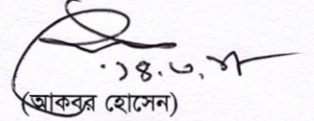 ১৪.৩.
(আকবর হোসেন)